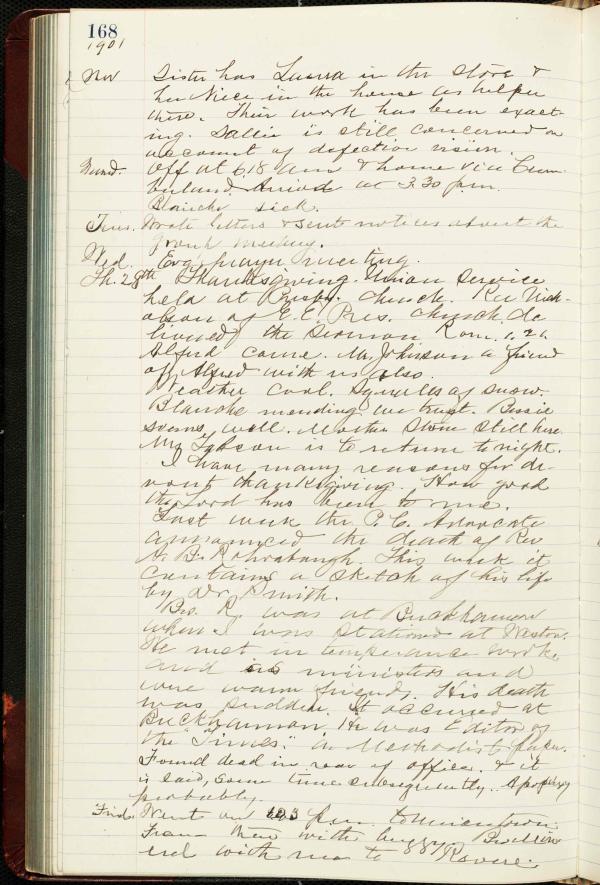 168
1901
Nov Sister has Laura in the store &
her Niece in the house as helper
there. Their work has been exact-
ing. Sallie is still concerned on
account of defective vision.
Off at 6.18 am & home via Cum
berland. Arrived at 3.30 p.m.
Blanche sick.
Tues. Wrote letters & sent notices about the
group meeting.
Wed. Evg prayer meeting.
Th. 28th Thanksgiving. Union Service
held at Presby. church. Rev Nich-
olson of E.E. Pres. church de
livered the sermon Rom. 1.21.
Alfred came. Mr. Johnson a friend
of Alfred with us also.
Weather cool. Squalls of snow.
Blanche mending we trust. Bessie
seems well. Mother Stone still here.
Mr is to return to night.
I have many reasons for de-
vout thanksgiving. How good
the Lord has been to me.
Last week the P.C. Advocate
announced the death of Rev
N. B. This week it
contains a sketch of his life
by Dr. Smith.
Bro. R. was at Buckhannon
when I was stationed at Weston.
We met in temperance work,
and as ministers and
were warm friends. His death
was sudden. It occurred at
Buckhannon. He was Editor of
the "Times." a Methodist paper.
Found dead in rear of office. & it
is said, some time subsequently. Apoplexy
probably.
Frid. Went on p.m. to Uniontown
From there with buggy
ed with me to